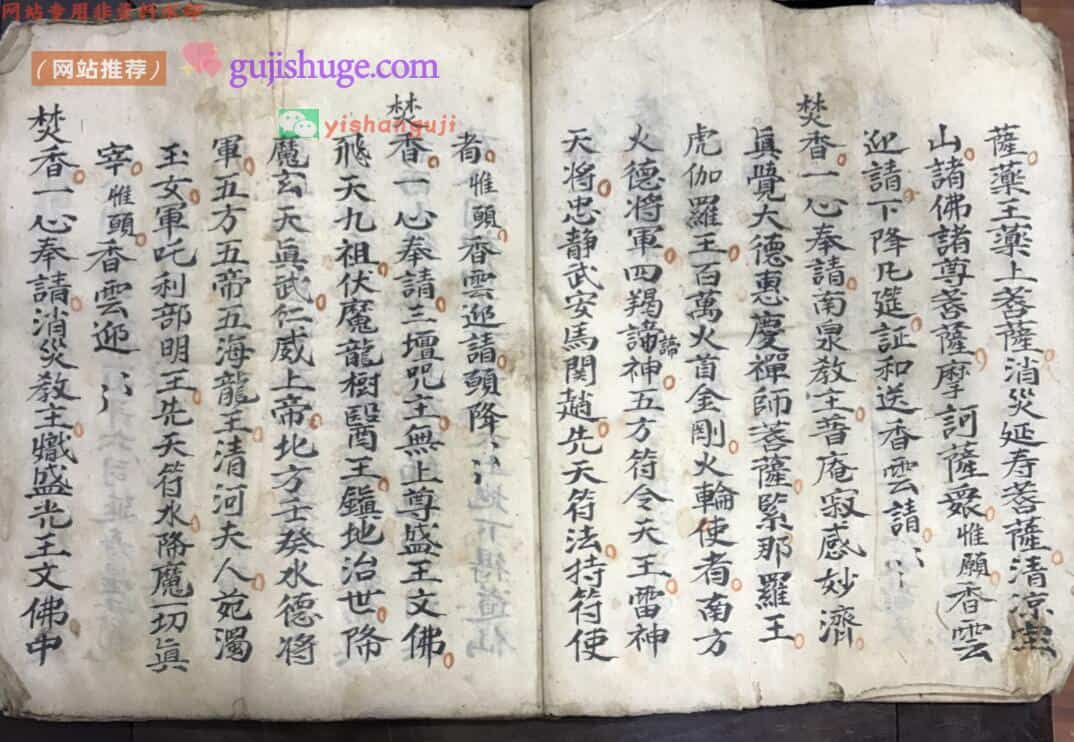 网站专用非卖的水印
（网站推荐）
gujishuge.com
yishanguji
薩藥王藥上菩薩消災延寿菩薩清凉宝
山諸佛諸尊菩薩摩訶薩衆惟願香雲
迎請下降凡筵証和送香雲請
焚香一心奉請南泉教主普庵寂感妙濟
真覺大德惠慶禪師菩薩緊那羅王
虎伽羅王百萬火首金剛火輪使者南方
火德將軍四羯諦神五方符令天王雷神
諦
天將忠靜武安馬関趙先天符法持符使
者惟願香雲迎請願降
焚香一心奉請三壇咒主無上尊盛王文佛
飛天九祖伏魔龍樹毉王鎮地治世降
魔玄天眞武仁威上帝北方壬癸水德將
軍五方五帝五海龍王清河夫人苑濁
玉女軍吒利部明王先天符水降魔一切眞
宰惟願香雲迎
焚香一心奉請消災教主熾盛光王文佛中